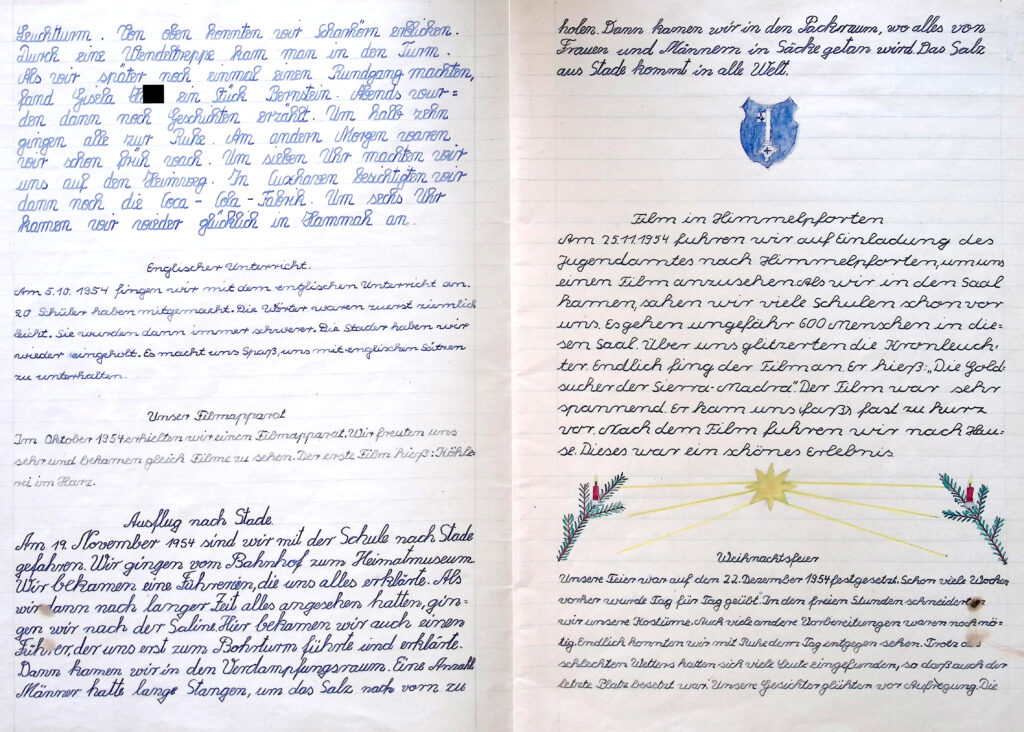 Leuchtturm. Von oben konnten wir Scharhörn erblicken.
Durch eine Wendeltreppe kam man in den Turm.
Als wir später noch einmal einen Rundgang machten,
fand Gisela ein Stück Bernstein. Abends wur=
den dann noch Geschichten erzählt. Um halb zehn
gingen alle zur Ruhe. Am andern Morgen waren
wir schon früh wach. Um sieben Uhr machten wir
uns auf den Heimweg. In Cuxhaven besichtigten wir
dann noch die Coca-Cola-Fabrik. Um sechs Uhr
kamen wir wieder glücklich in Hammah an.
Englischer Unterricht.
Am 5.10.1954 fingen wir mit dem englischen Unterricht an.
20 Schüler haben mitgemacht. Die Wörter waren zuerst ziemlich
leicht. Sie wurden dann immer schwerer. Die Stader haben wir
wieder eingeholt. Es macht uns Spaß, uns mit englischen Sätzen
zu unterhalten.
Unser Filmapparat
Im Oktober 1954 erhielten wir einem Filmapparat. Wir freuten uns
sehr und bekamen gleich Filme zu sehen. Der erste Film hieß: Köhle-
rei im Harz.
Ausflug nach Stade.
Am 19. November 1954 sind wir mit der Schule nach Stade
gefahren. Wir gingen vom Bahnhof zum Heimatmuseum
Wir bekamen eine Führerin, die uns alles erklärte. Als
wir dann nach langer Zeit alles angesehen hatten, gin=
gen wir nach der Saline. Hier bekamen wir auch einen
Führer, der uns erst zum Bohrturm führte und erklärte.
Dann kamen wir in den Verdampfungsraum. Eine Anzahl
Männer hatte lange Stangen, um das Salz nach vorn zu
holen. Dann kamen wir in den Packraum, wo alles von
Frauen und Männern in Säcke getan wird. Das Salz
aus Stade kommt in alle Welt.
Film in Himmelpforten
Am 25.11.1954 fuhren wir auf Einladung des
Jugendamtes nach Himmelpforten, um uns
einen Film anzusehen. Als wir in den Saal
kamen, sahen wir viele Schulen schon vor
uns. Es gehen ungefähr 600 Menschen in die-
sen Saal. Über uns glitzerten die Kronleuch-
ter. Endlich fing der Film an. Er hieß: „Die Gold-
sucher der Sierra-Madra". Der Film war sehr
spannend. Er kam uns faßs fast zu kurz
vor. Nach dem Film fuhren wir nach Hau-
se. Dieses war ein schönes Erlebnis
Weihnachtsfeier
Unsere Feier war auf den 22. Dezember 1954 festgesetzt. Schon viele Wochen
vorher wurde Tag für Tag geübt. In den freien Stunden schneiderten
wir unsere Kostüme. Auch viele andere Vorbereitungen waren noch nö-
tig. Endlich konnten wir mit Ruhe dem Tag entgegen sehen. Trotz des
schlechten Wetters hatten sich viele Leute eingefunden, so daß auch der
letzte Platz besetzt war. Unsere Gesichter glühten vor Aufregung. Die